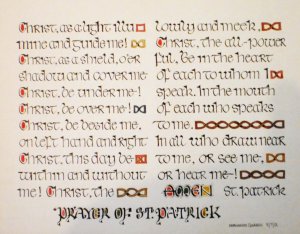 Christ, as a light illu
mine and guide me!
Christ, as a shield, o'er
shadow and cover me
Christ, be under me!
Christ, be over me!
Christ, be beside me,
on left hand and right
Christ, this day be
within and without
me! Christ, the
lowly and meek,
Christ, the all-power
ful, Be in the heart
of each to whom I
speak, In the mouth
of each who speaks
to me.
In all who draw near
to me, or see me,
or hear me!
AMEN St. Patrick
PRAYER OF ST. PATRICK